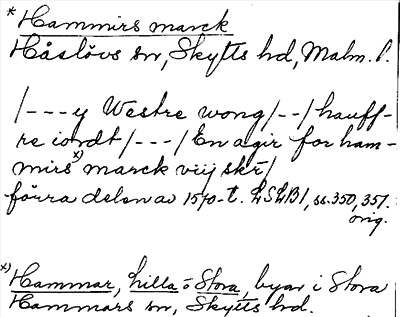 * Hammirs marck
Håslövs sn, Skytts hd, Malm. l.
/---y Westre wong/--/hauff-
re iordt/---/En agir for ham-
mirs x) marck viij skr/
förra delen av 1570-t. LSLB1, ss. 350, 357.
orig.
x) Hammar, Lilla o Stora, byar i Stora
Hammars sn, Skytts hd.